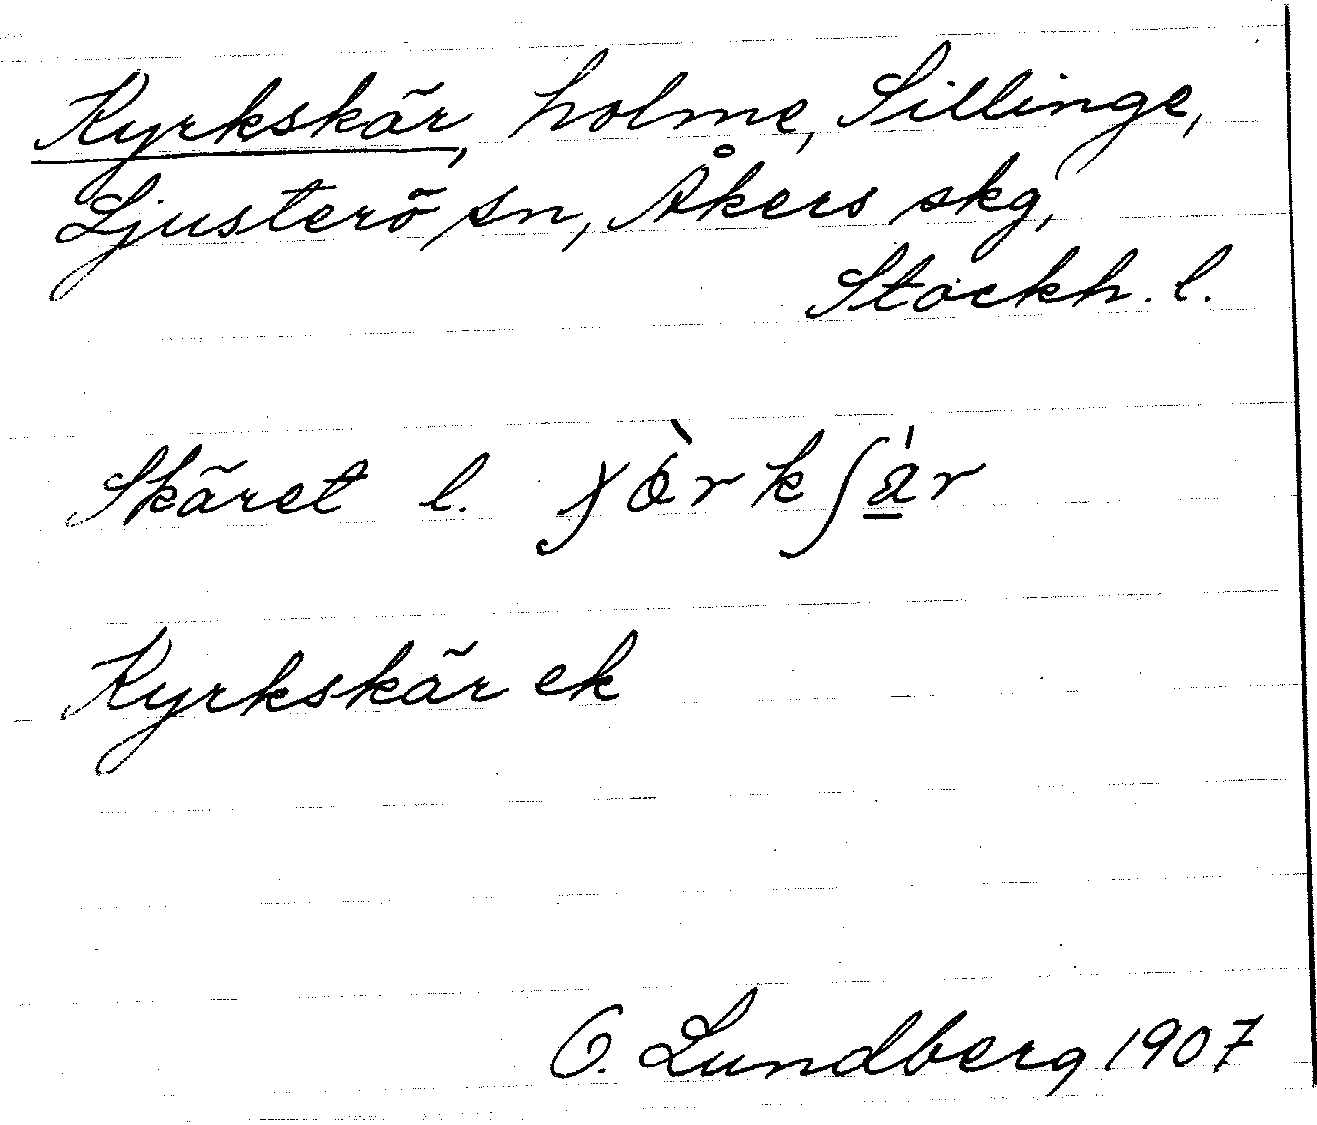 Kyrkskär, holme, Sillinge,
Ljusterö sn, Åkers skg,
Stockh. l.
Skäret l.
Kyrkskär ek
O. Lundberg 1907